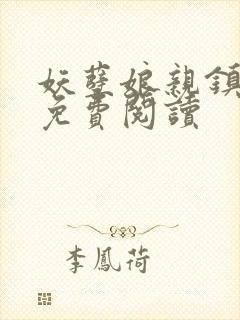 妖孽娘親鎮
免費閱讀
李鳳荷